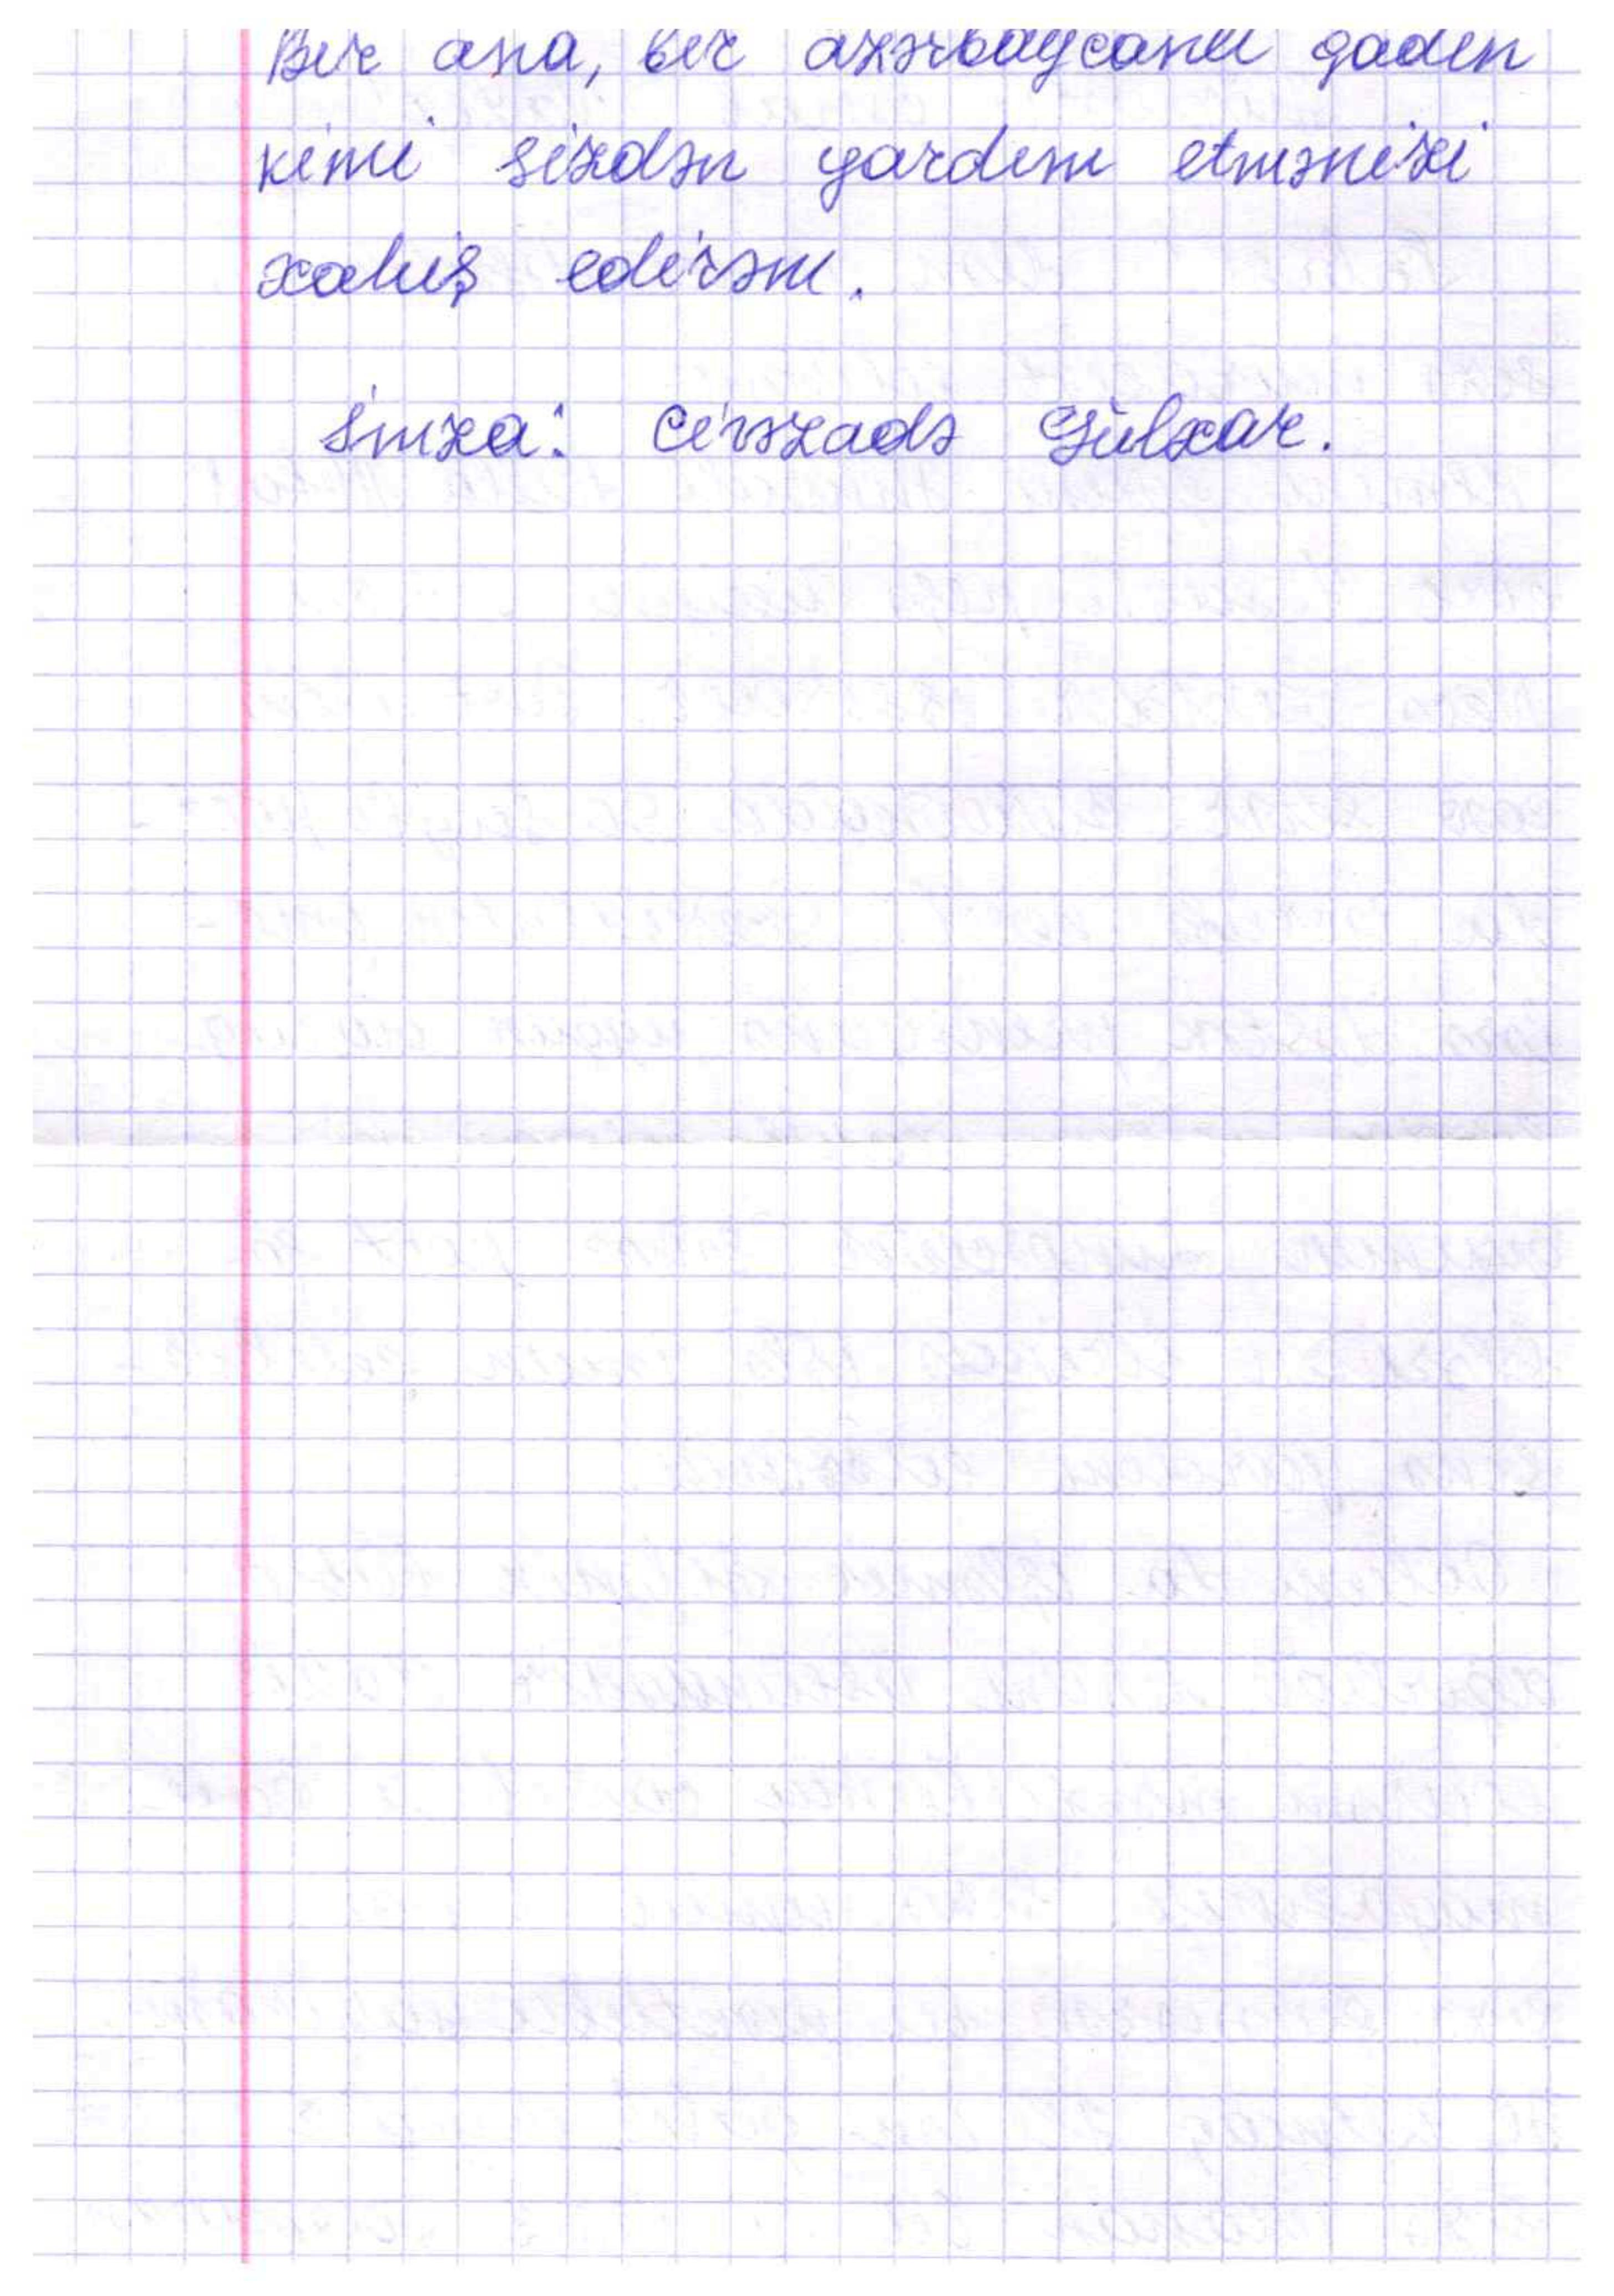 Bir ana, bir azərbaycanlı qadın
kimi sizdən yardım etmənizi
xahiş edirəm.
İmza: Cirəzadə Gülxar.